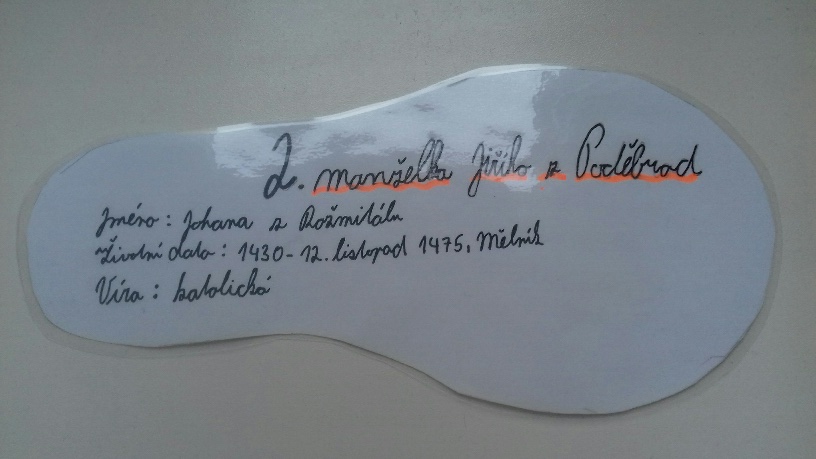 2. manželka Jiřího z Poděbrad
Jméno : Johana z Rožmitálu
Životní data : 1430 - 12. listopad 1475, Mělník
Víra : katolická